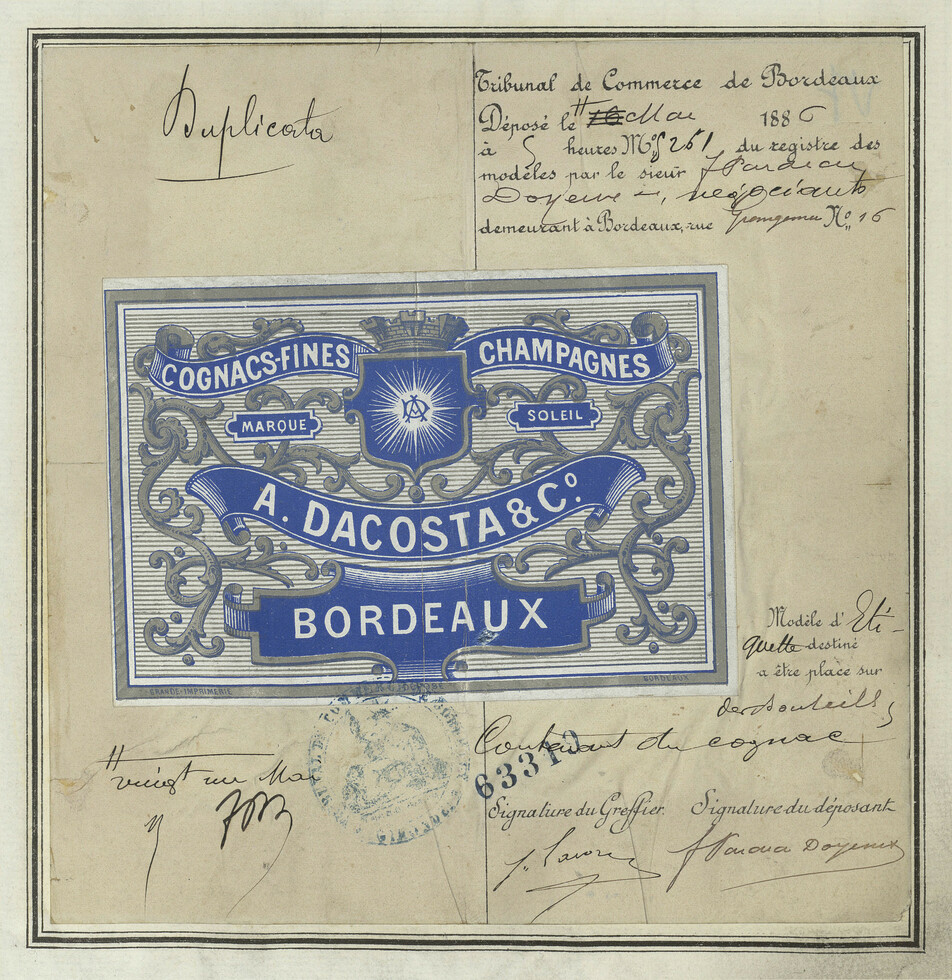 Duplicata
Tribunal de Commerce de Bordeaux
Déposé le Mai 1886
à 5 heures No 5251 du registre des
modèles par le sieur
Doyenx, négociants
demeurant à Bordeaux, rue No 16
COGNACS-FINES CHAMPAGNES
MARQUE SOLEIL
A. DACOSTA & Co.
BORDEAUX
GRANDE-IMPRIMERIE BORDEAUX
Modèle d' Eti-
quette destiné
a être place sur
des bouteilles
Contenant du cognac
vingt un Mai
63310
Signature du Greffier. Signature du déposant